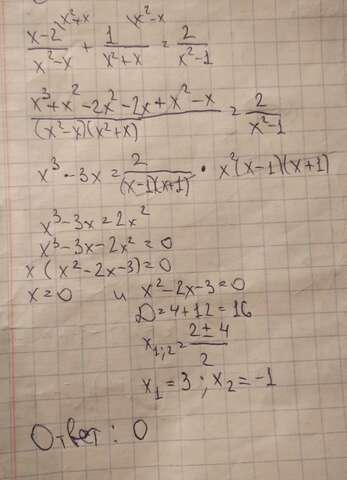 x²+x x²-x
x-2/x²-x + 1/x²+x = 2/x²-1
x³+x²-2x²-2x+x²-x/(x²-x)(x²+x) = 2/x²-1
x³-3x = 2/(x-1)(x+1) · x²(x-1)(x+1)
x³-3x=2x²
x³-3x-2x²=0
x(x²-2x-3)=0
x=0 и x²-2x-3=0
D=4+12=16
x₁;₂=2±4/2
x₁=3; x₂=-1
Ответ: 0